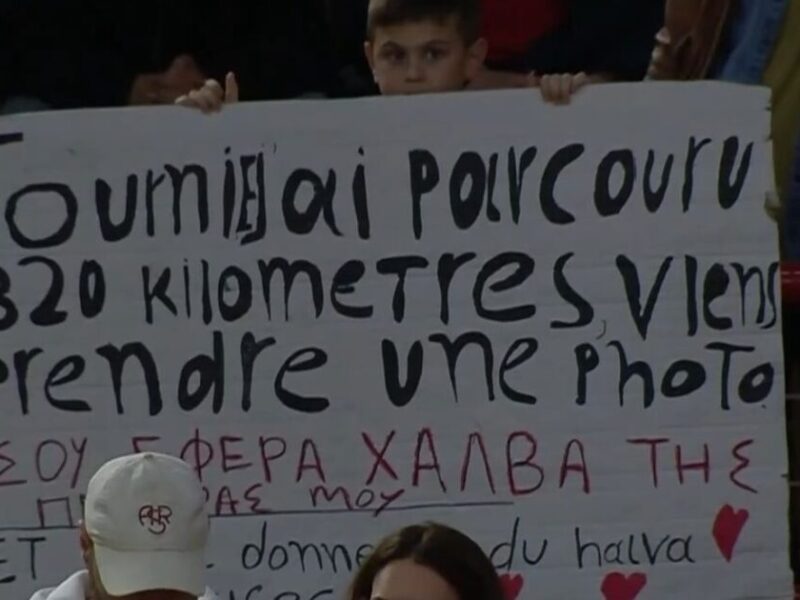 TOUrniEJ'ai parcouru
320 kilometres, viens
prendre une photo
ΣΟΥ ΕΦΕΡΑ ΧΑΛΒΑ ΤΗΣ
ΜΟΥ
ET donne du halva